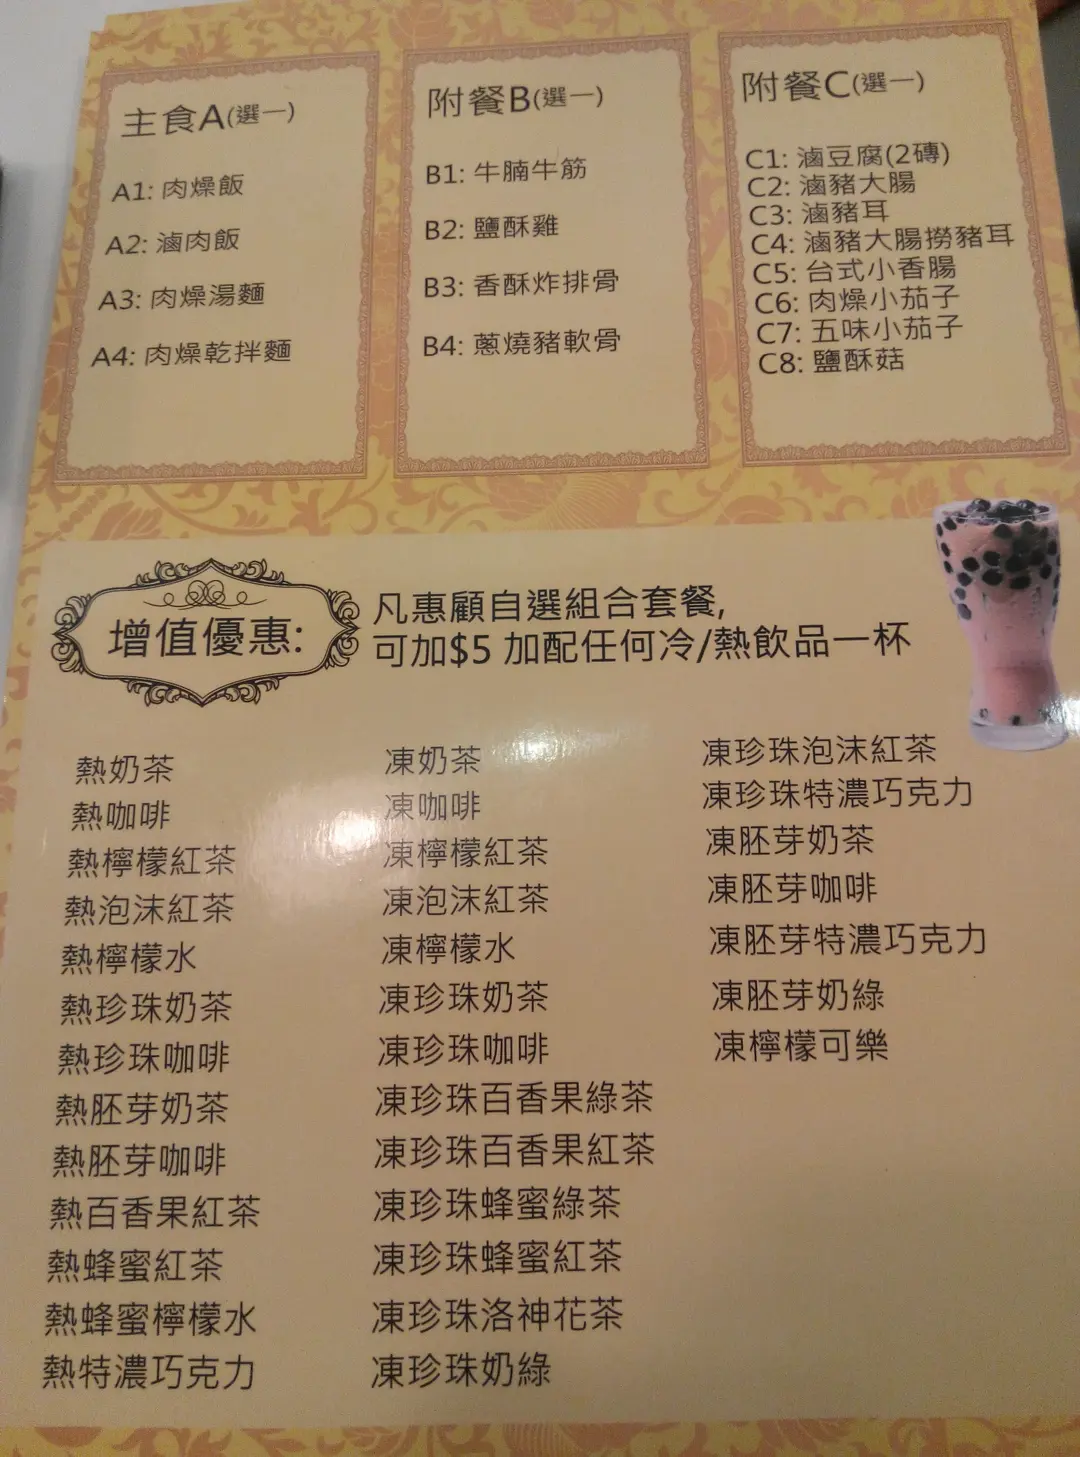 主食A(選一)
A1: 肉燥飯
A2: 滷肉飯
A3: 肉燥湯麵
A4: 肉燥乾拌麵
附餐B(選一)
B1: 牛腩牛筋
B2: 鹽酥雞
B3: 香酥炸排骨
B4: 蔥燒豬軟骨
附餐C(選一)
C1: 滷豆腐(2磚)
C2: 滷豬大腸
C3: 滷豬耳
C4: 滷豬大腸撈豬耳
C5: 台式小香腸
C6: 肉燥小茄子
C7: 五味小茄子
C8: 鹽酥菇
增值優惠:
凡惠顧自選組合套餐,
可加$5 加配任何冷/熱飲品一杯
熱奶茶
熱咖啡
熱檸檬紅茶
熱泡沫紅茶
熱檸檬水
熱珍珠奶茶
熱珍珠咖啡
熱胚芽奶茶
熱胚芽咖啡
熱百香果紅茶
熱蜂蜜紅茶
熱蜂蜜檸檬水
熱特濃巧克力
凍奶茶
凍咖啡
凍檸檬紅茶
凍泡沫紅茶
凍檸檬水
凍珍珠奶茶
凍珍珠咖啡
凍珍珠百香果綠茶
凍珍珠百香果紅茶
凍珍珠蜂蜜綠茶
凍珍珠蜂蜜紅茶
凍珍珠洛神花茶
凍珍珠奶綠
凍珍珠泡沫紅茶
凍珍珠特濃巧克力
凍胚芽奶茶
凍胚芽咖啡
凍胚芽特濃巧克力
凍胚芽奶綠
凍檸檬可樂